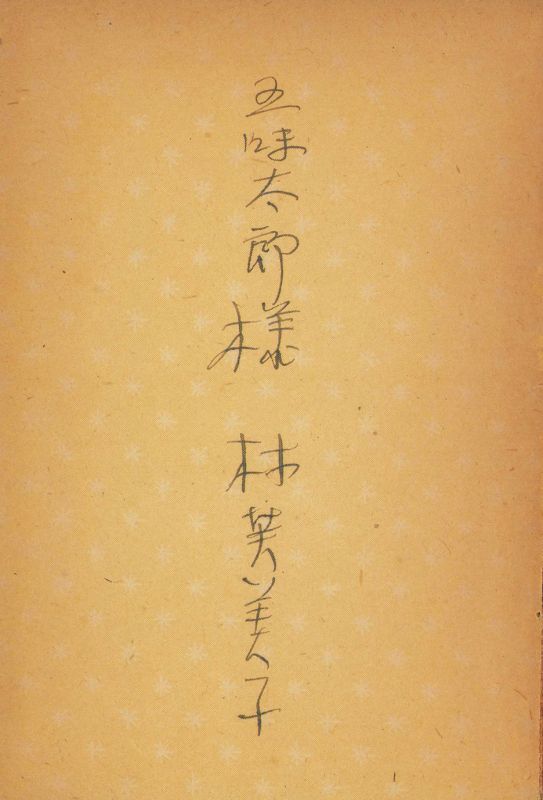 五味太郎様 林芙美子